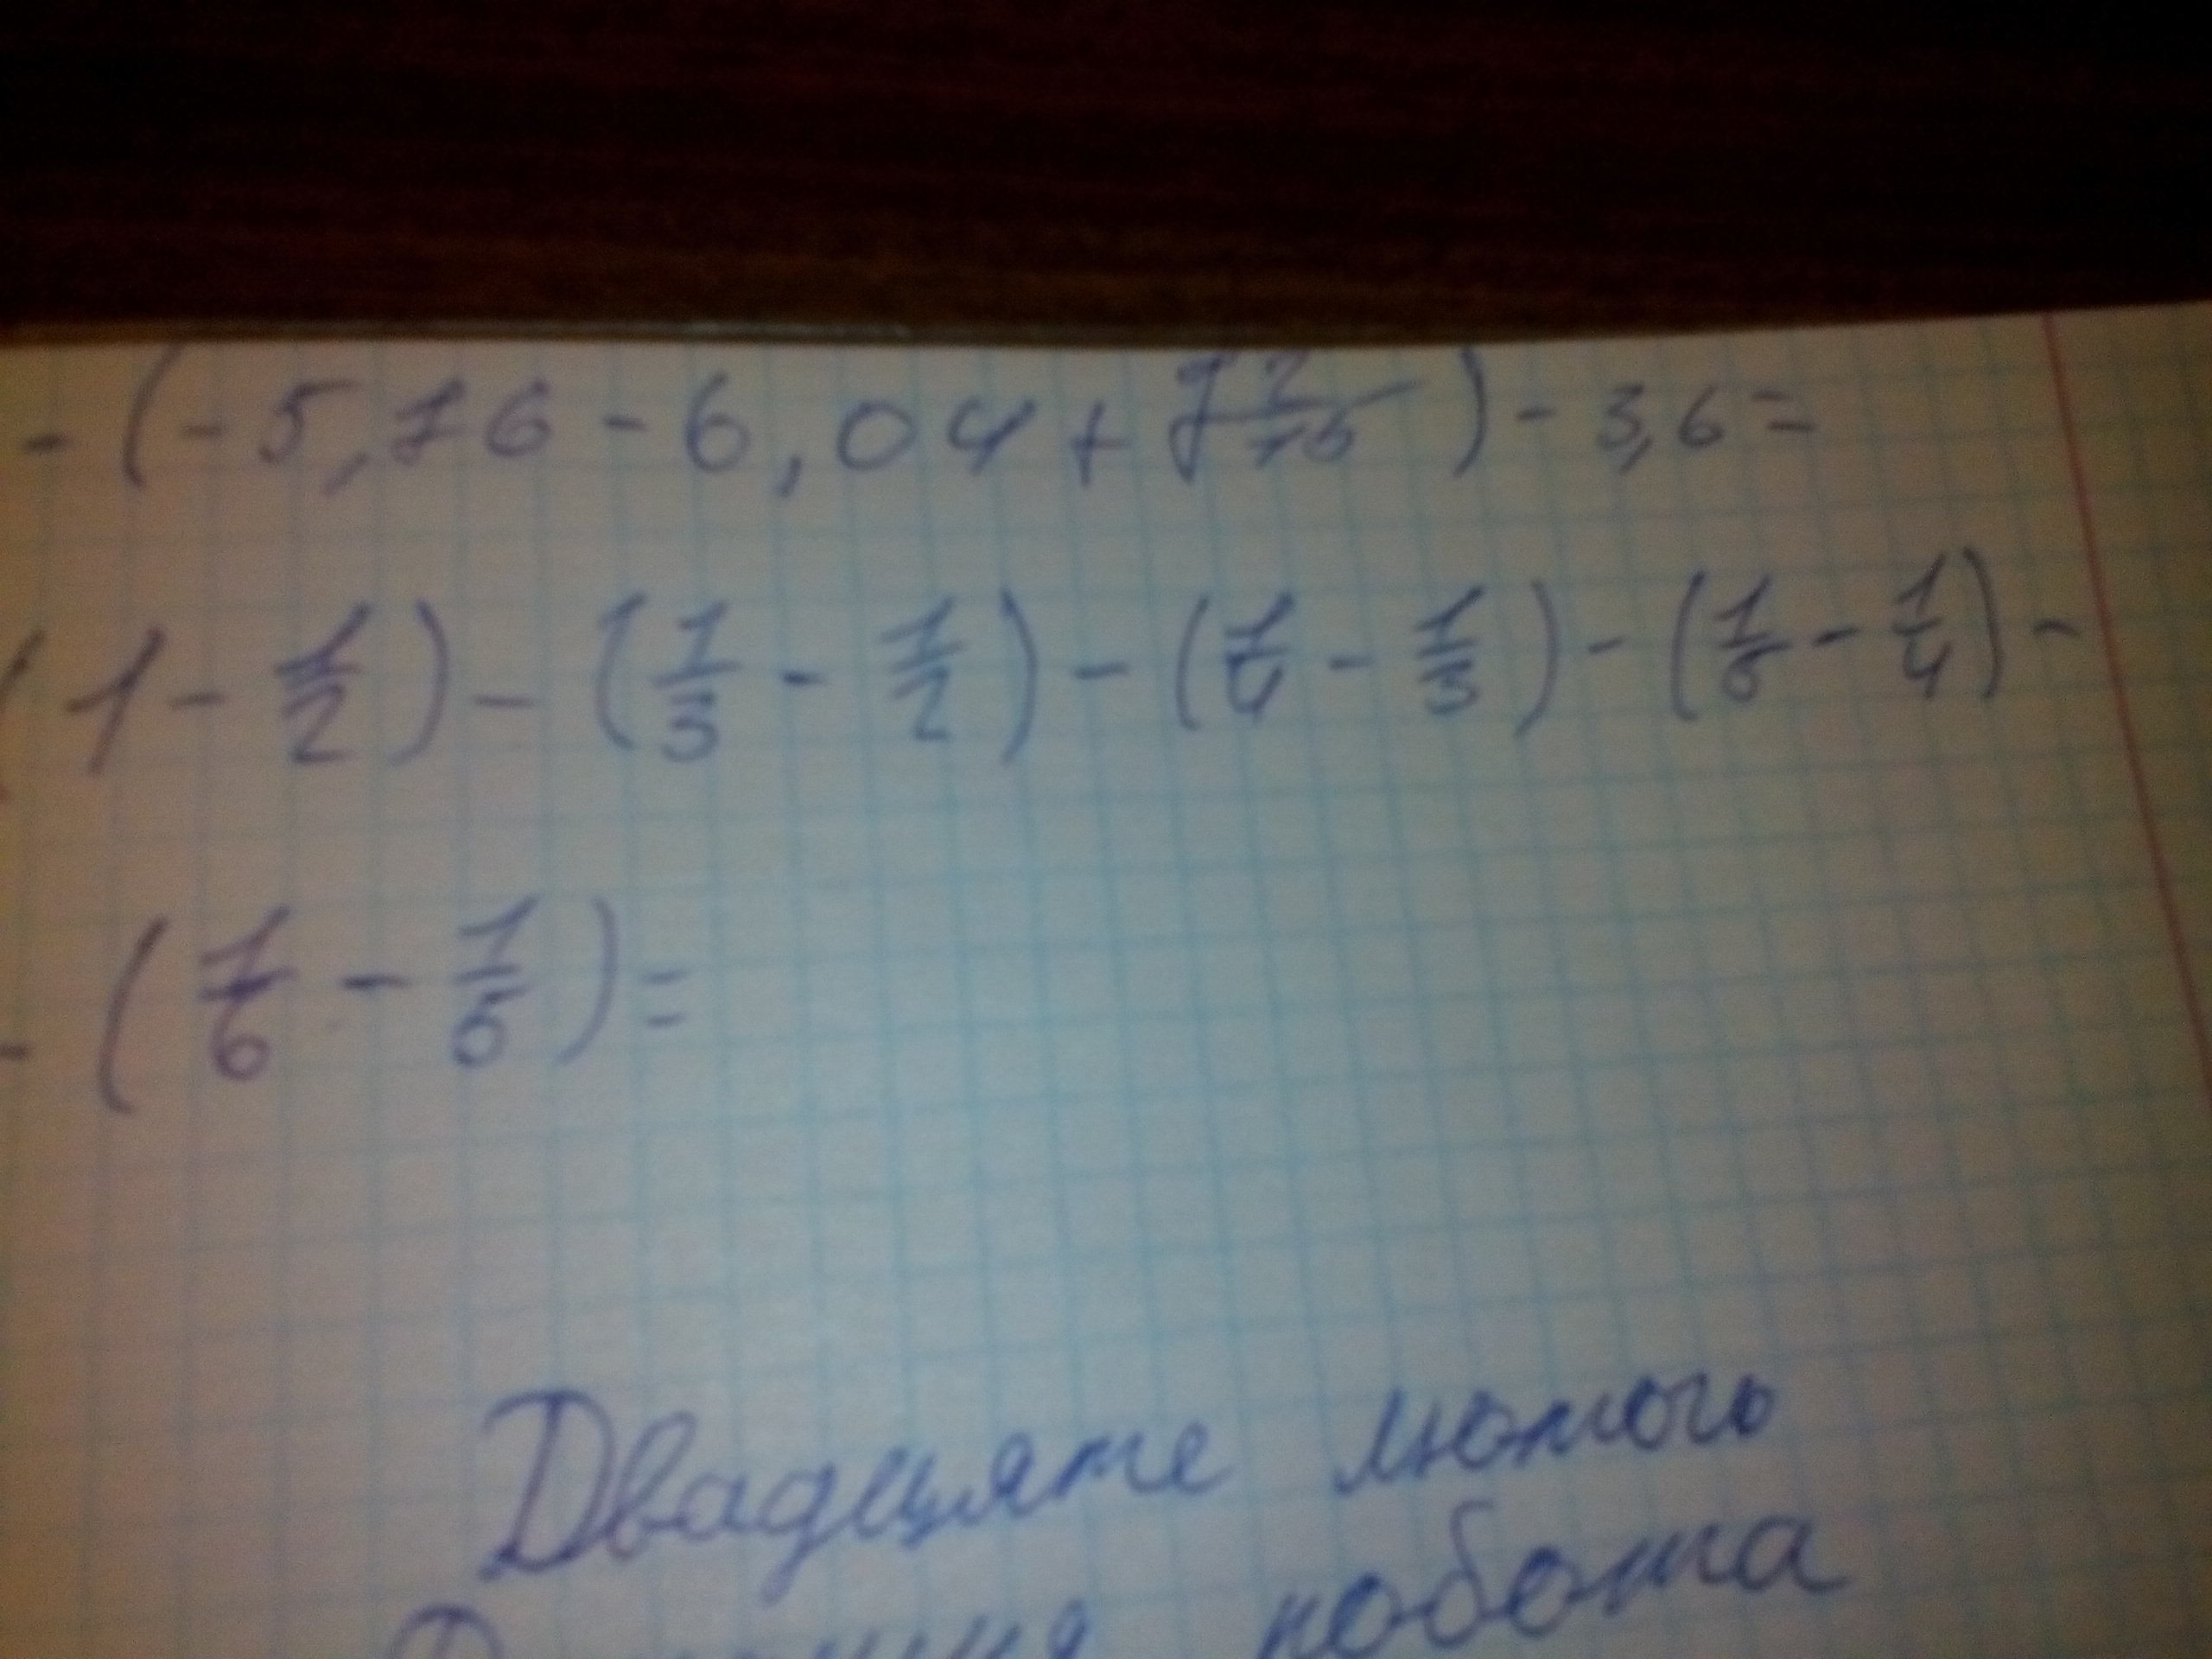 - (- 5,76 - 6,04 + 7 2/15) - 3,6 =
(1 - 1/2) - (1/3 - 1/2) - (1/4 - 1/3) - (1/5 - 1/4) -
- (1/6 - 1/5) =
Двадцяте лютого
робота